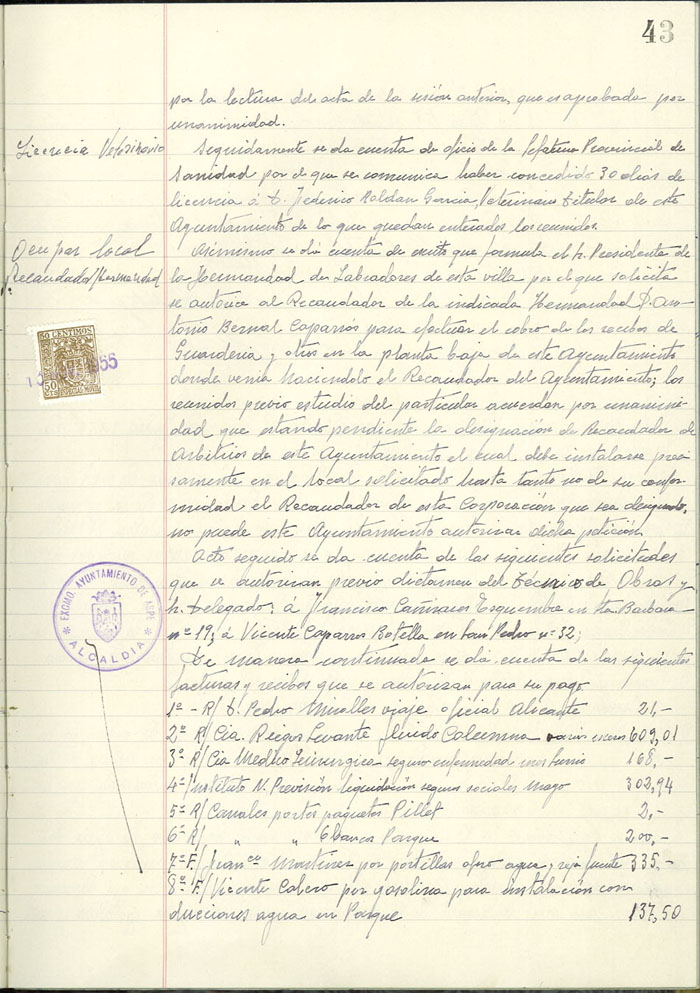 43
por la lectura del acta de la sesión anterior, que es aprobada por
unanimidad.
Licencia Veterinario
Seguidamente se da cuenta de oficio de la Jefatura Provincial de
Sanidad por el que se comunica haber concedido 30 dias de
licencia á D. Federico Roldan Garcia, Veterinario titular de este
Ayuntamiento de lo que quedan enterados los reunidos.
Ocupar local
Recaudador Hermandad
Asimismo se dá cuenta de escrito que formula el Sr. Presidente de
la Hermandad de Labradores de esta villa por el que solicita
se autorice al Recaudador de la indicada Hermandad D. An-
tonio Bernal Caparrós para efectuar el cobro de los recibos de
Guarderia y otros en la planta baja de este Ayuntamiento
donde venia haciendolo el Recaudador del Ayuntamiento; los
reunidos previo estudio del particular acuerdan por unanimi-
dad que estando pendiente la designación de Recaudador de
Arbitrios de este Ayuntamiento el cual debe instalarse preci
samente en el local solicitado hasta tanto no de su confor-
midad el Recaudador de esta Corporación que sea designado,
no puede este Ayuntamiento autorizar dicha petición
50 CENTIMOS
50
CTS
ESPECIAL MOVIL
1955
Acto seguido se da cuenta de las siguientes solicitudes
que se autorizan previo dictamen del técnico de Obras y
Sr. Delegado; á Francisco Cañizares Esquembre en Sta Barbara
nº 19; á Vicente Caparros Botella en San Pedro nº 32;
EXCMO. AYUNTAMIENTO DE ASPE
* ALCALDIA *
De manera continuada se dá cuenta de las siguientes
facturas y recibos que se autorizan para su pago
1º - R/ D. Pedro Miralles viaje oficial Alicante 21,-
2º R/ Cia. Riegos Levante fluido Columna 609,01
3º R/ Cia Medico Quirurgica seguro enfermedad mes Junio 168,-
4º Instituto N. Previsión liquidación seguros sociales Mayo 302,94
5º R/ Canales portes paquetes Pillet 2,-
6º R/ " " 6 bancos Parque 200,-
7º F/ Franco Martinez por portillas aforo agua y reja fuente 335,-
8º F/ Vicente Calero por gasolina para instalación con
ducciones agua en Parque 137,50